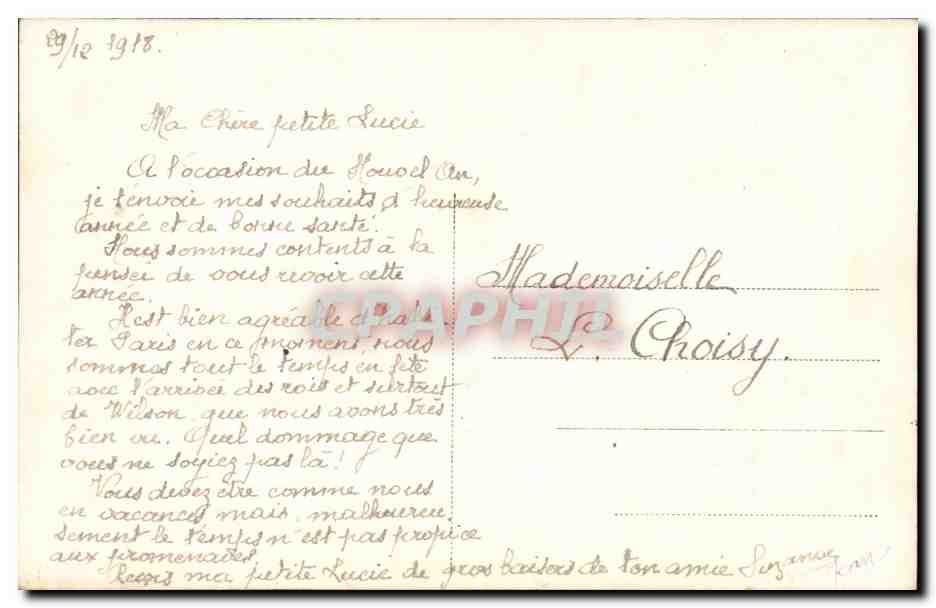 29/12 1918.
Ma Chère petite Lucie
A l'occasion du Nouvel An,
je t'envoie mes souhaits d'heureuse
année et de bonne santé.
Nous sommes contents à la
pensée de vous revoir cette
année.
Il est bien agréable d'habi-
ter Paris en ce moment, nous
sommes tout le temps en fête
avec l'arrivée des rois et surtout
de Wilson, que nous avons très
bien vu. Quel dommage que
vous ne soyiez pas là!
Vous devez être comme nous
en vacances mais, malheureu
sement le temps n'est pas propice
aux promenades
ma petite Lucie de gros baisers de ton amie Suzanne
Mademoiselle
L. Choisy.
CPAPHIL